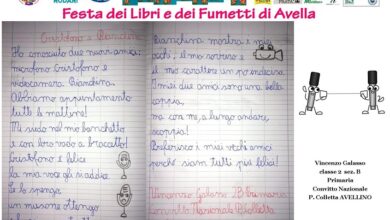 RODARI
Festa dei Libri e dei Fumetti di Avella
Cristoforo e Biancina
Ho conosciuto due nuovi amici:
microfono Cristoforo e
videocamera Biancina.
Abbiamo appuntamento
tutte le mattine!
Mi siedo nel mio banchetto
e con loro vado a braccetto!
Cristoforo è felice
la mia voce gli si addice.
Se lo spengo,
un musone ottengo.
Biancina mostra i miei
occhi, il mio sorriso e
il mio carattere un po' indeciso.
I miei due amici sono una bella
coppia,
ma con me, a lungo andare,
scoppia!
Preferivo i miei vecchi amici
perché siam tutti più felici!
Vincenzo Galasso 2B primaria
Convitto Nazionale P. Colletta
Vincenzo Galasso
classe 2 sez. B
Primaria
Convitto Nazionale
P. Colletta AVELLINO